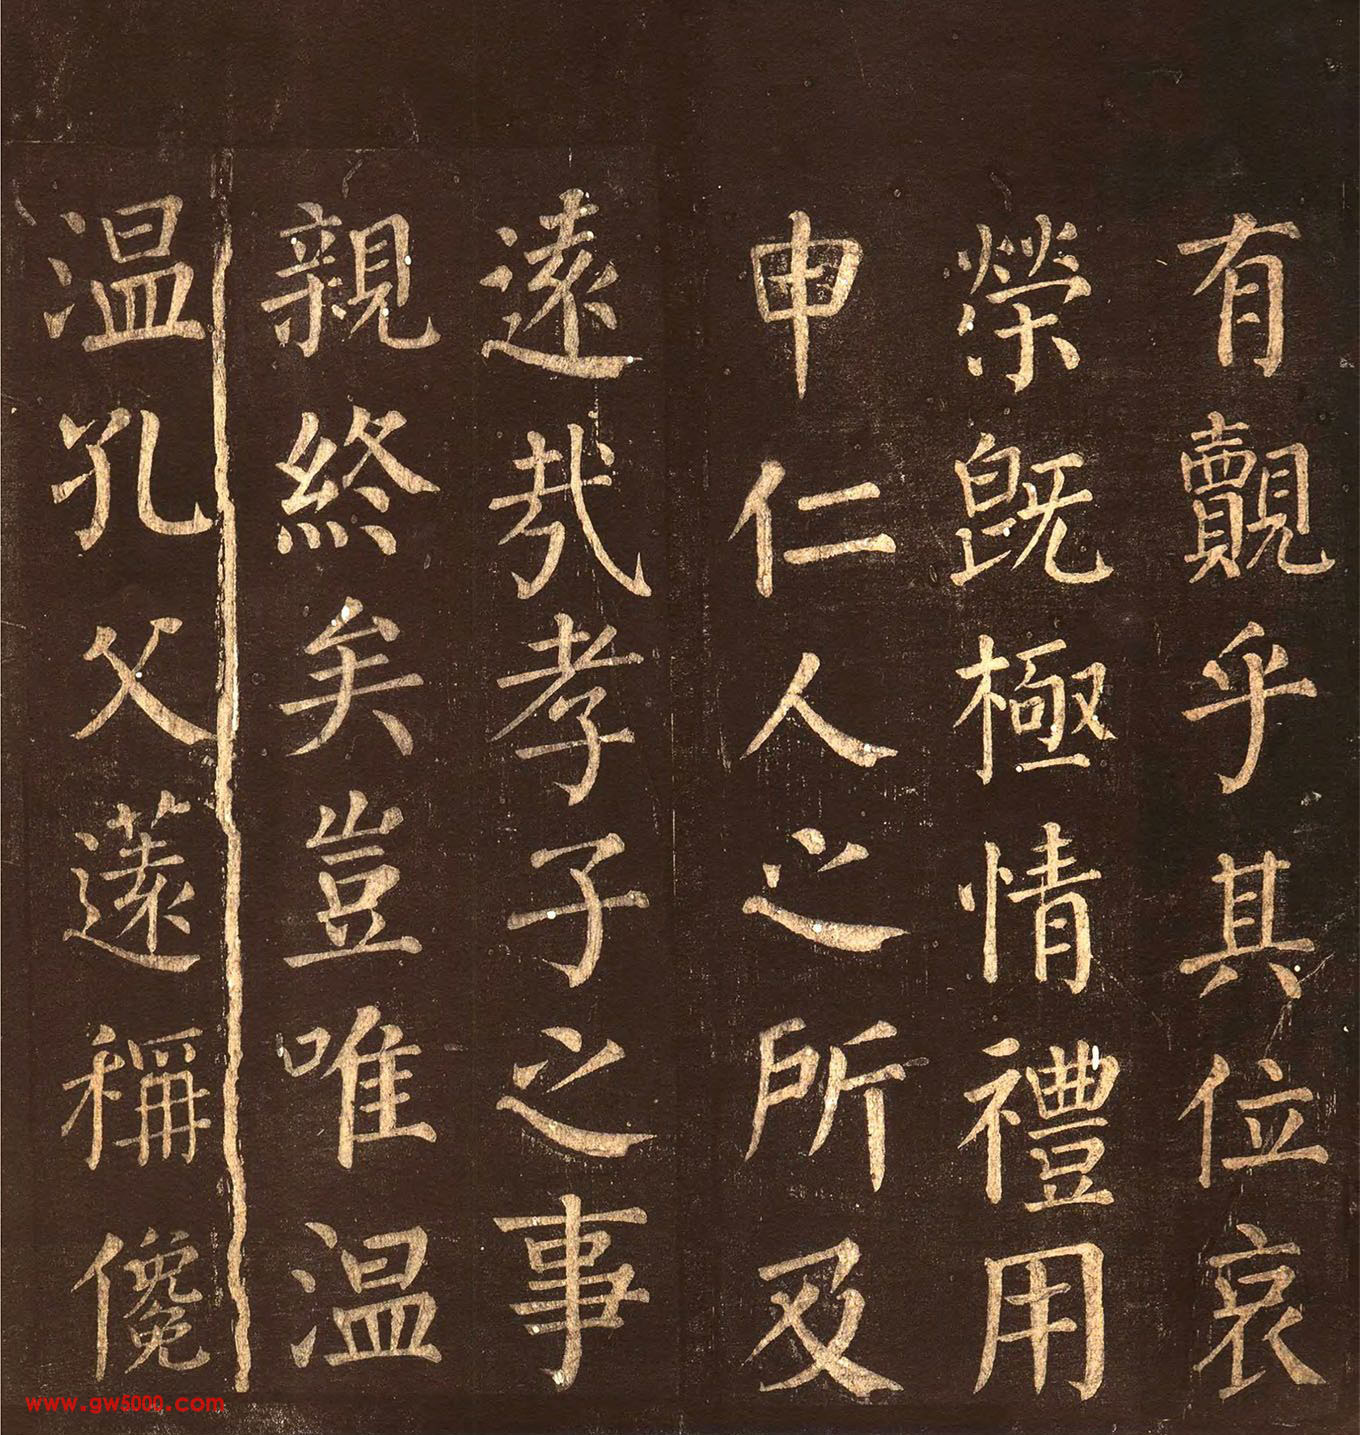 有覿乎其位哀
榮既極情禮用
申仁人之所及
遠哉孝子之事
親終矣豈唯温
温孔父薳稱儳
www.gw5000.com